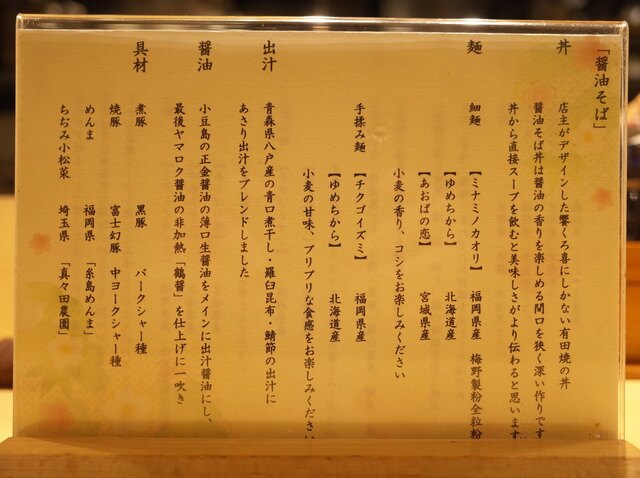 「醤油そば」
丼
店主がデザインした饗くろ喜にしかない有田焼の丼
醤油そば丼は醤油の香りを楽しめる間口を狭く深い作りです
丼から直接スープを飲むと美味しさがより伝わると思います
麺
細麺 【ミナミノカオリ】 福岡県産 梅野製粉全粒粉
【ゆめちから】 北海道産
【あおばの恋】 宮城県産
小麦の香り、コシをお楽しみください
手揉み麺 【チクゴイズミ】 福岡県産
【ゆめちから】 北海道産
小麦の甘味、プリプリな食感をお楽しみください
出汁
青森県八戸産の青口煮干し・羅臼昆布・鯖節の出汁に
あさり出汁をブレンドしました
醤油
小豆島の正金醤油の薄口生醤油をメインに出汁醤油にし、
最後ヤマロク醤油の非加熱「鶴醤」を仕上げに一吹き
具材
煮豚 黒豚 バークシャー種
焼豚 富士幻豚 中ヨークシャー種
めんま 福岡県 「糸島めんま」
ちぢみ小松菜 埼玉県 「真々田農園」